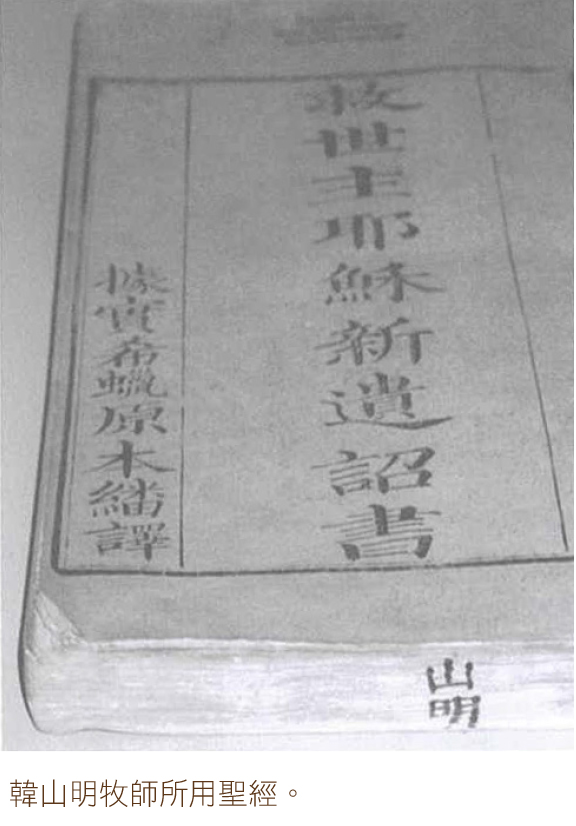 救世主耶穌新遺詔書
據實希蠟原本繙譯
山明
韓山明牧師所用聖經。